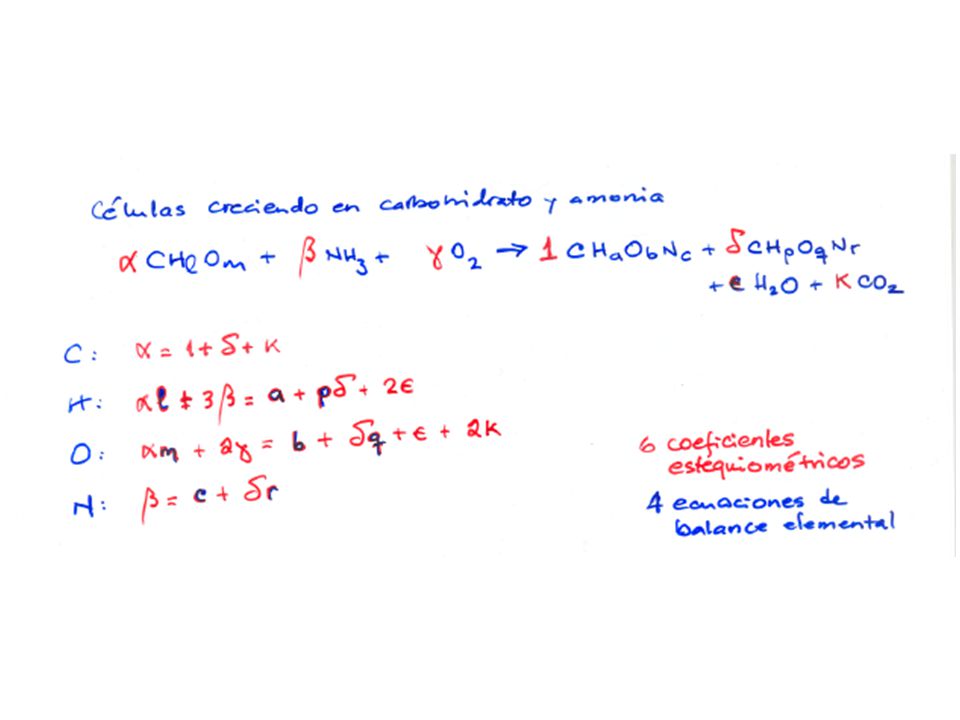 Células creciendo en carbohidrato y amonia
α CHlOm + β NH₃ + γ O₂ → 1 CHaObNc + δ CHpOqNr
+ ϵ H₂O + K CO₂
C: α = 1 + δ + K
H: αl + 3β = a + pδ + 2ϵ
O: αm + 2γ = b + δq + ϵ + 2K
N: β = c + δr
6 coeficientes
estequiométricos
4 ecuaciones de
balance elemental